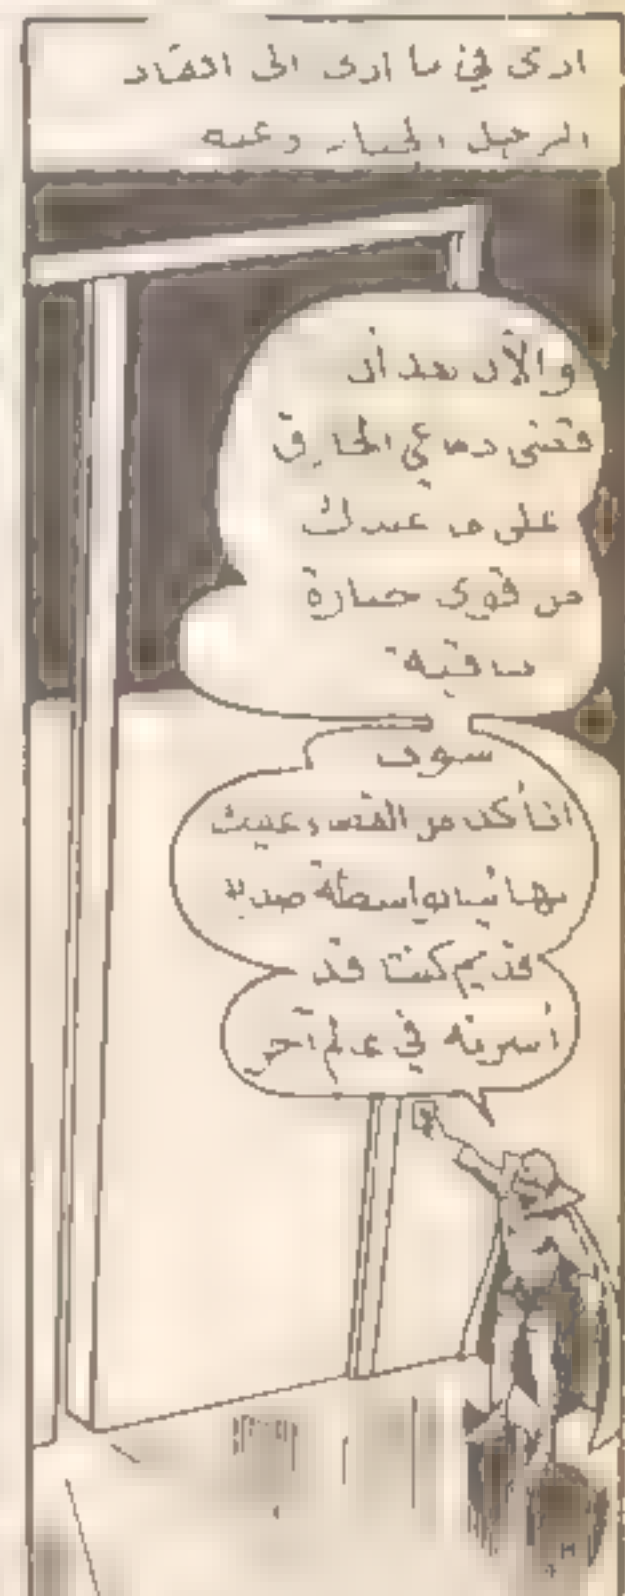 ادى في ما ادى الى افقاد
الرجل الجبار وعيه
والآن بعد أن
قضى دماغي الخارق
على ما عندك
من قوى جبارة
باقية
سوف
اتأكد من القضاء عليك
نهائيا بواسطة صديق
قديم كنت قد
أسرته في عالم آخر